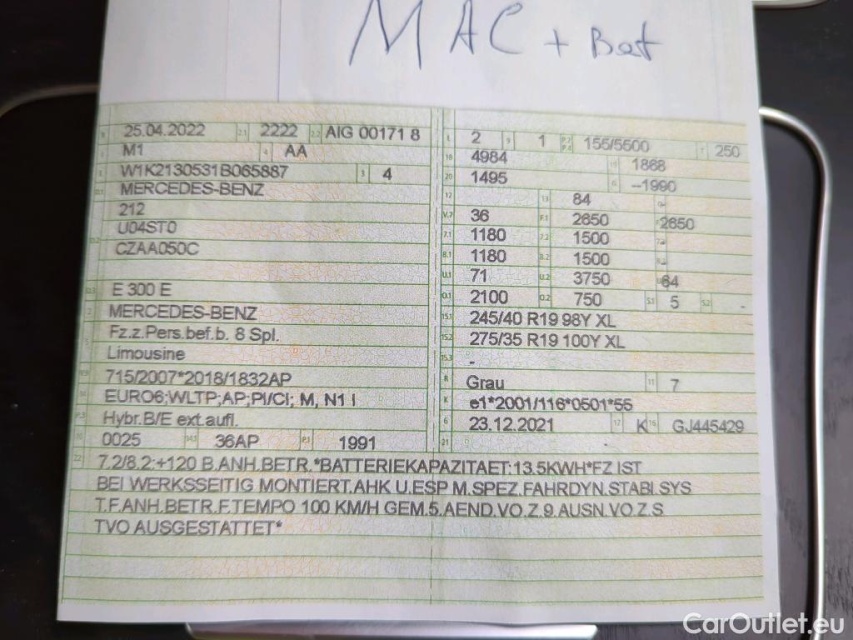 MAC + Bat
25.04.2022 2222 AIG 00171 8
M1 AA
W1K2130531B065887 4
MERCEDES-BENZ
212
U04ST0
CZAA050C
E 300 E
MERCEDES-BENZ
Fz.z.Pers.bef.b. 8 Spl.
Limousine
715/2007*2018/1832AP
EURO6;WLTP;AP;PI/CI; M, N1 I
Hybr.B/E ext.aufl.
0025 36AP 1991
2 1 155/5500 250
4984 1868
1495 --1990
84
36 2650 2650
1180 1500
1180 1500
71 3750 64
2100 750 5 -
245/40 R19 98Y XL
275/35 R19 100Y XL
-
Grau 7
e1*2001/116*0501*55
23.12.2021 K GJ445429
7.2/8.2:+120 B.ANH.BETR.*BATTERIEKAPAZITAET:13.5KWH*FZ IST
BEI WERKSSEITIG MONTIERT.AHK U.ESP M.SPEZ.FAHRDYN.STABI.SYS
T.F.ANH.BETR.F.TEMPO 100 KM/H GEM.5.AEND.VO.Z.9.AUSN.VO.Z.S
TVO AUSGESTATTET*
CarOutlet.eu